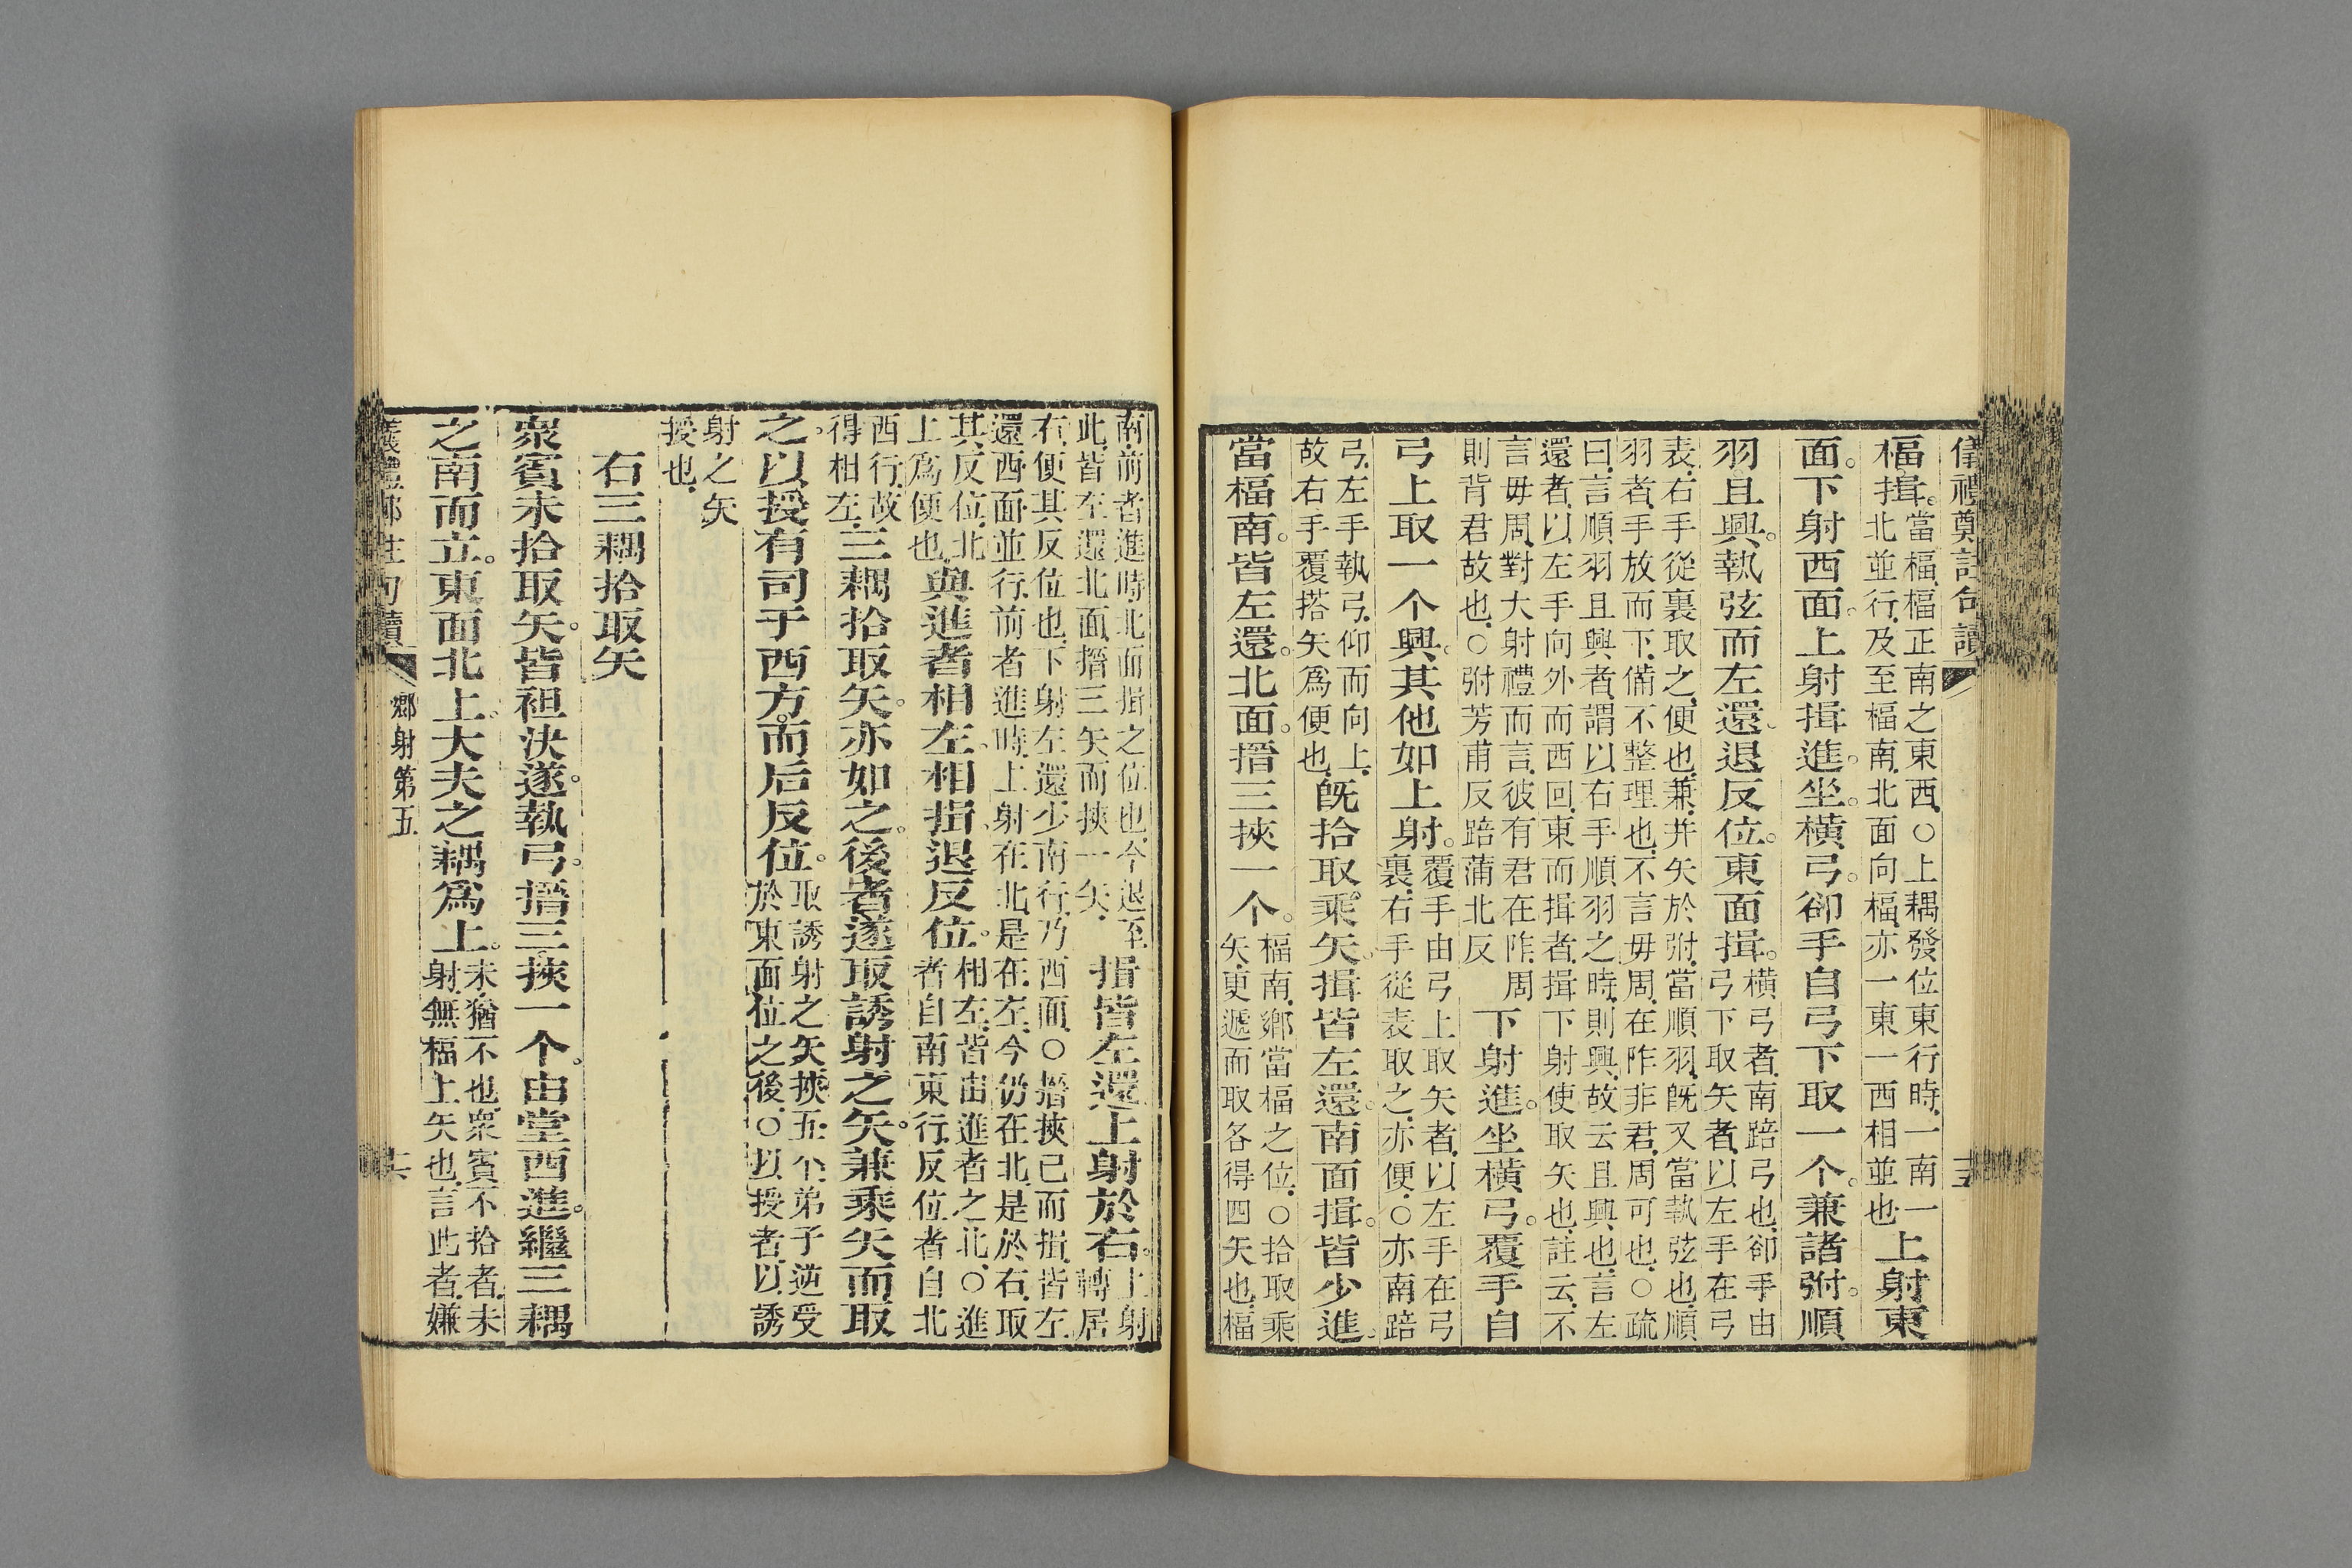 儀禮鄭註句讀
十五
楅揖。
當楅楅正南之東西○上耦發位東行時一南一
北並行及至楅南北面向楅亦一東一西相並也
上射東
面。下射西面。上射揖進。坐。橫弓。卻手自弓下取一个。兼諸弣。順
羽且興。執弦而左還。退反位。東面揖。
橫弓者南踣弓也卻手由
弓下取矢者以左手在弓
表右手從裏取之便也兼并矢於弣當順羽旣又當執弦也順
羽者手放而下備不整理也不言毋周在阼非君周可也○疏
曰言順羽且興者謂以右手順羽之時則興故云且興也言左
還者以左手向外而西回東而揖者揖下射使取矢也註云不
言毋周對大射禮而言彼有君在阼周
則背君故也○弣芳甫反踣蒲北反
下射進。坐橫弓。覆手自
弓上取一个興。其他如上射。
覆手由弓上取矢者以左手在弓
裏右手從表取之亦便○亦南踣
弓左手執弓仰而向上
故右手覆搭矢爲便也
旣拾取乘矢。揖皆左還。南面揖。皆少進。
當楅南。皆左還。北面。搢三挾一个。
楅南鄉當楅之位○拾取乘
矢更遞而取各得四矢也楅
南前者進時北面揖之位也今退至
此皆左還北面搢三矢而挾一矢
揖皆左還上射於右。
上射
轉居
右便其反位也下射左還少南行乃西面○搢挾已而揖皆左
還西面並行前者進時上射在北是在左今仍在北是於右取
其反位北
上爲便也
與進者相左。相揖。退反位。
相左皆由進者之北○進
者自南東行反位者自北
西行故
得相左
三耦拾取矢。亦如之。後者遂取誘射之矢。兼乘矢而取
之。以授有司于西方。而后反位。
取誘射之矢挾五个弟子逆受
於東面位之後○以授者以誘
射之矢
授也
右三耦拾取矢
衆賓未拾取矢。皆袒決遂。執弓。搢三挾一个。由堂西進。繼三耦
之南而立。東面北上。大夫之耦爲上。
未猶不也衆賓不拾者未
射無楅上矢也言此者嫌
儀禮鄭註句讀
鄉射第五